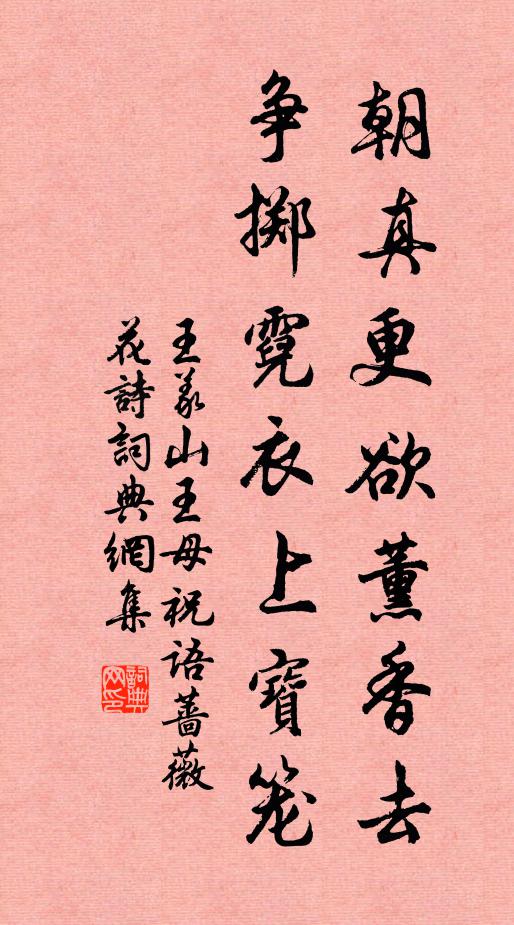 朝真更欲薰香去
争掷霓衣上寶笼
王义山王母祝语蔷薇
花詩詞典網集
詞典网印